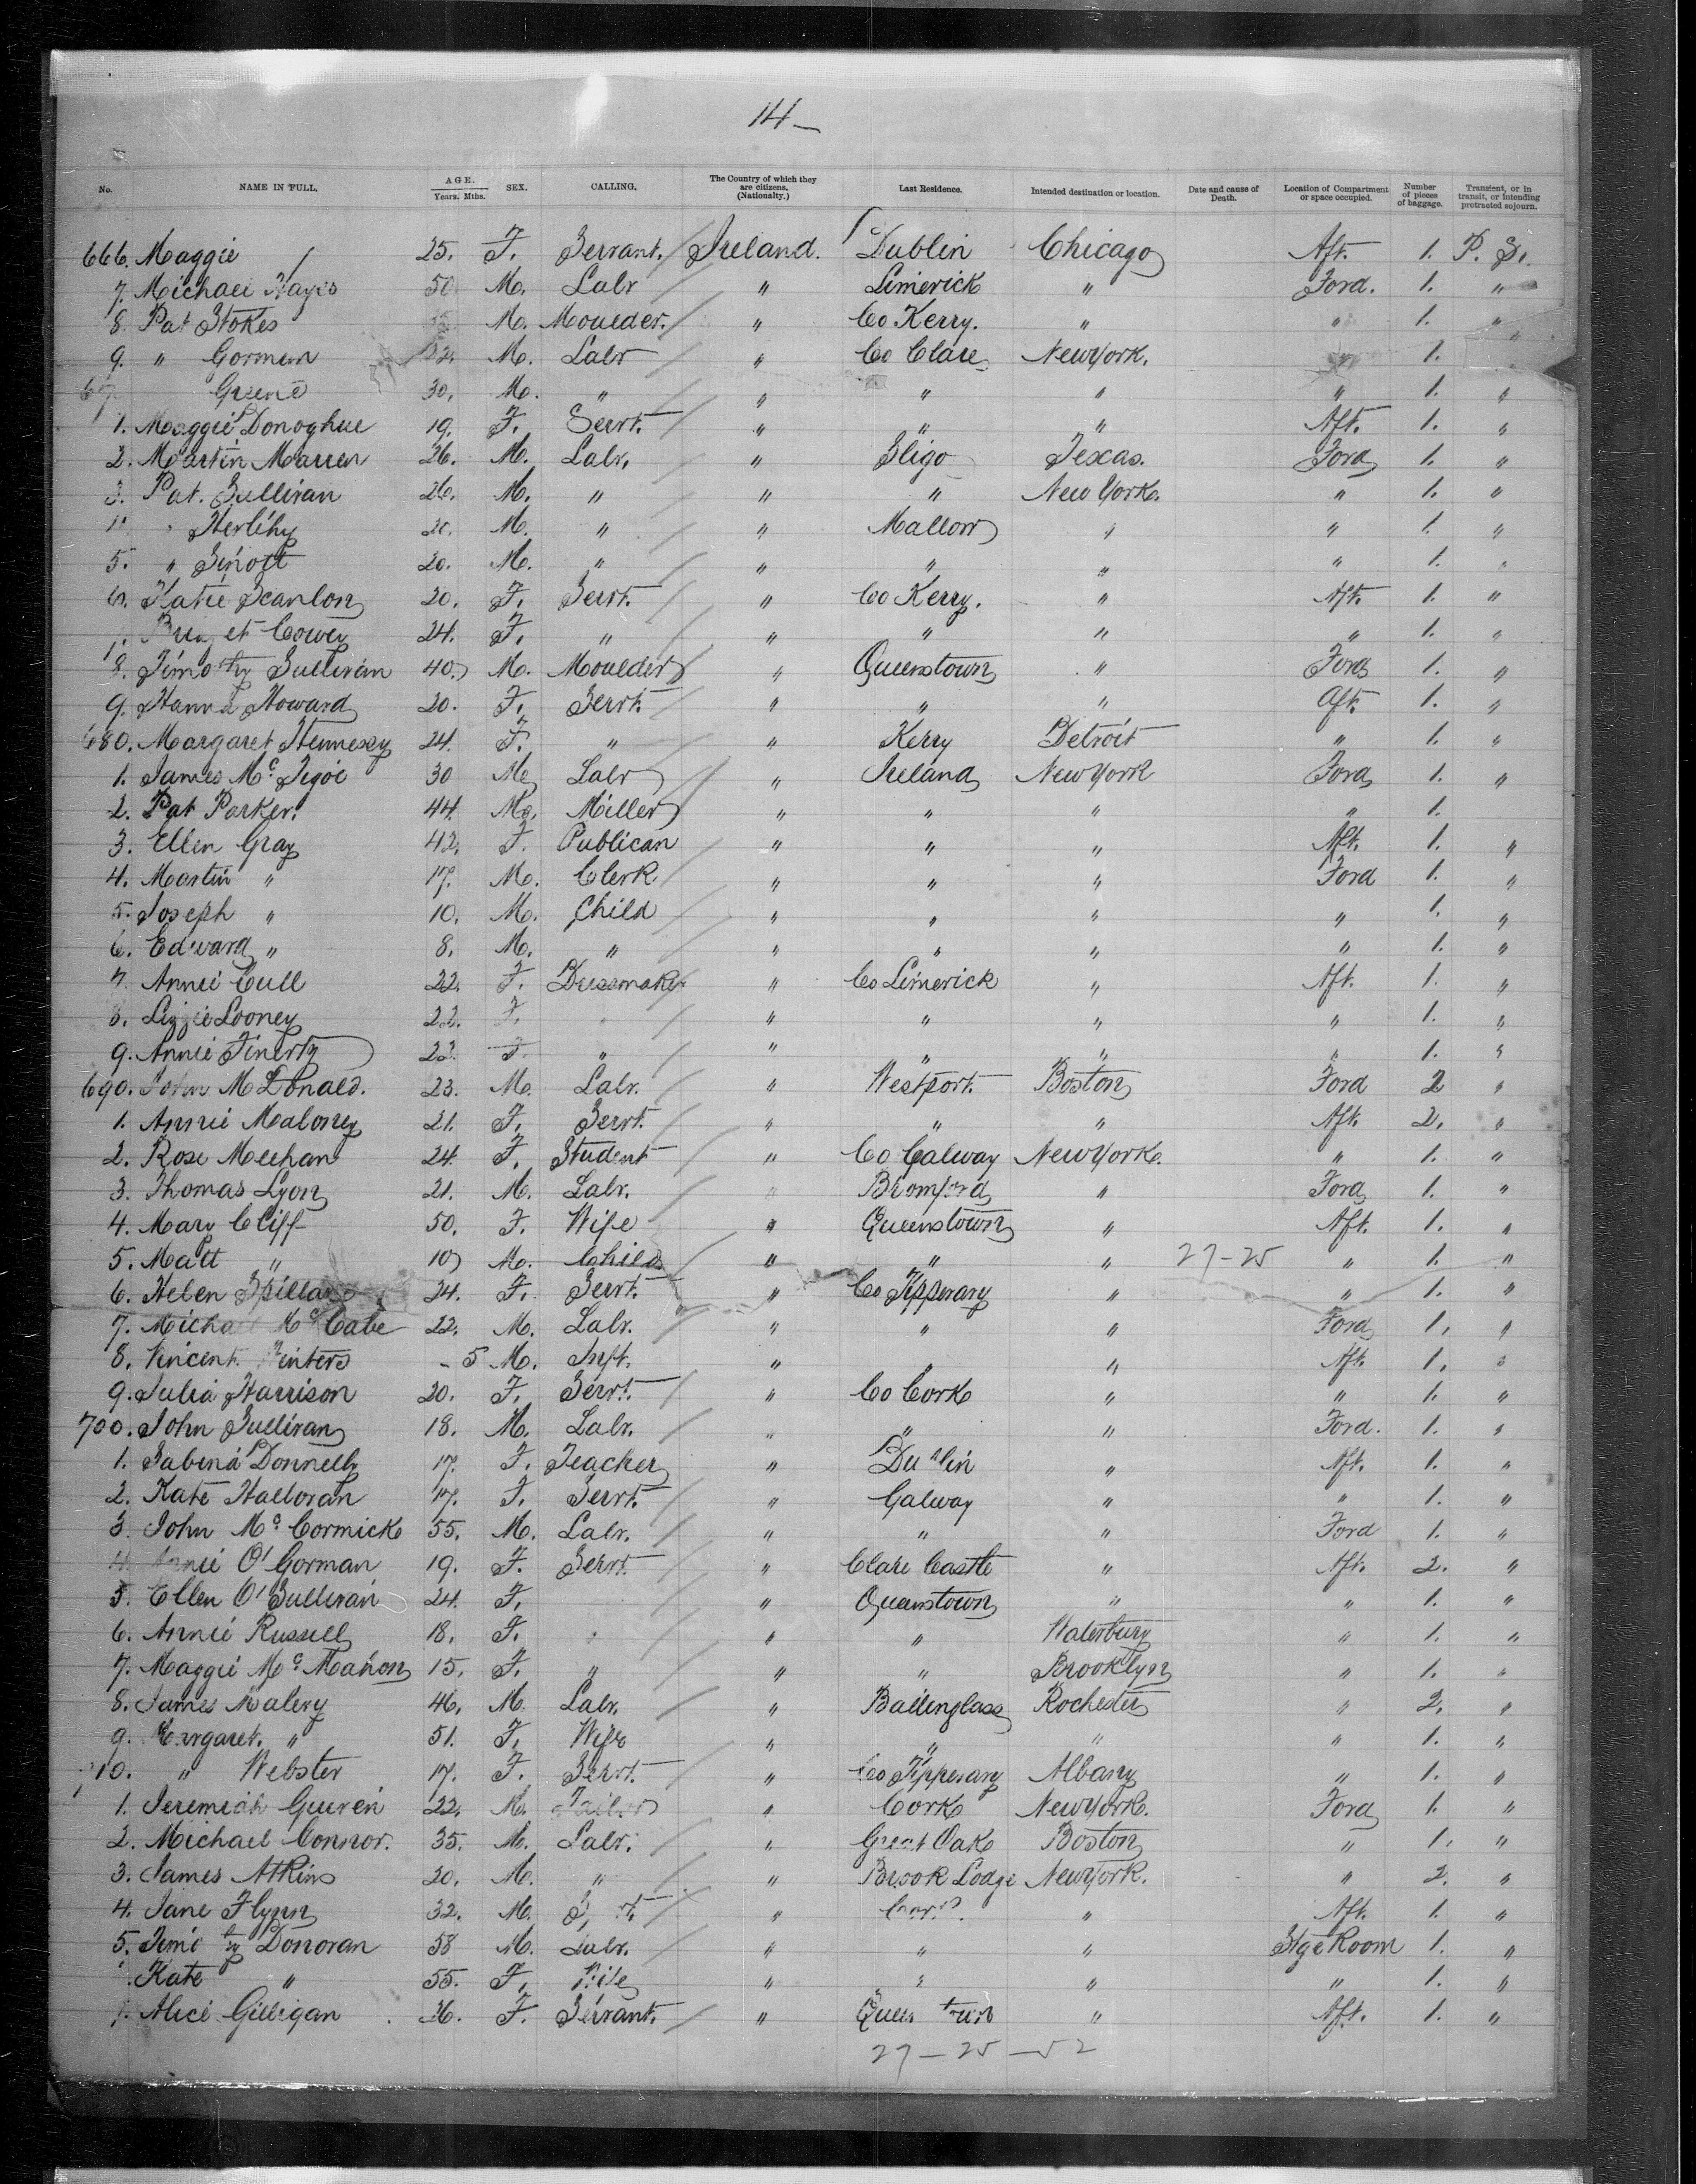 14 —
No. NAME IN FULL. AGE. Years. Mths. SEX. CALLING. The Country of which they are citizens. (Nationalty.) Last Residence. Intended destination or location. Date and cause of Death. Location of Compartment or space occupied. Number of pieces of baggage. Transient, or in transit, or intending protracted sojourn.
666. Maggie 25. F. Servant. Ireland. Dublin Chicago Aft. 1. P. S.
7. Michael Hayes 50 M. Labr " Limerick " Ford. 1. "
8. Pat Stokes M. Moulder. " Co Kerry. " " 1. "
9. " Gorman M. Labr " Co Clare New York. " 1. "
Greene 30. M. " " " " " 1. "
1. Maggie Donoghue 19. F. Servt. " " " Aft. 1. "
2. Martin Marren 26. M. Labr. " Sligo Texas. Ford 1. "
3. Pat. Sullivan 26. M. " " " New York. " 1. "
" Herlihy M. " " Mallow " " 1. "
5. " Sinott 20. M. " " " " " 1. "
6. Katie Scanlon 20. F. Servt. " Co Kerry. " Aft. 1. "
24. F. " " " " " 1. "
8. Timothy Sullivan 40. M. Moulder " Queenstown " Ford 1. "
9. Hanna Howard 20. F. Servt. " " " Aft. 1. "
680. Margaret Hennesy 24. F. " " Kerry Detroit " 1. "
1. James Mc 30 M. Labr " Ireland New York Ford 1. "
2. Pat Parker. 44. M. Miller " " " " 1.
3. Ellen Gray 42. F. Publican " " " Aft. 1. "
4. Martin " 17. M. Clerk " " " Ford 1. "
5. Joseph " 10. M. Child " " " " 1. "
6. Edward " 8. M. " " " " " 1. "
7. Annie Cull 22. F. Dressmaker " Co Limerick " Aft. 1. "
8. Lizzie Looney 22. F. " " " " " 1. "
9. Annie Finerty 22. F. " " " " " 1. "
690. John McDonald. 23. M. Labr. " Westport. Boston Ford 2 "
1. Annie Maloney 21. F. Servt. " " " Aft. 2. "
2. Rose Meehan 24. F. Student " Co Galway New York. " 1. "
3. Thomas Lyon 21. M. Labr. " " Ford 1. "
4. Mary Cliff 50. F. Wife " Queenstown " Aft. 1. "
5. Matt " 10 M. Child " " " 27-25 " 1. "
6. Helen 24. F. Servt. " Co Tipperary " " 1. "
7. Michael McCabe 22. M. Labr. " " " Ford 1. "
8. Vincent - 5 M. Inft. " " " Aft. 1. "
9. Julia Harrison 20. F. Servt. " Co Cork " " 1. "
700. John Sullivan 18. M. Labr. " " " Ford. 1. "
1. Sabina Donnelly 17. F. Teacher " Dublin " Aft. 1. "
2. Kate Halloran 17. F. Servt. " Galway " " 1. "
3. John McCormick 55. M. Labr. " " " Ford 1. "
4. Annie O'Gorman 19. F. Servt. " Clare Castle " Aft. 2. "
5. Ellen O'Sullivan 24. F. " Queenstown " " 1. "
6. Annie Russell 18. F. " " " Waterbury " 1. "
7. Maggie McMahon 15. F. " " " Brooklyn " 1. "
8. James Malery 46. M. Labr. " Ballinglass Rochester " 2. "
9. Margaret. " 51. F. Wife " " " " 1. "
710. " Webster 17. F. Servt. " Co Tipperary Albany " 1. "
1. Jeremiah 22. M. Tailor " Cork New York. Ford 1. "
2. Michael Connor. 35. M. Labr. " Great Oak Boston " 1. "
3. James Atkins 20. M. " " Brook Lodge New York. " 2. "
4. Jane Flynn 32. M. " " Aft. 1. "
5. Timothy Donovan 58 M. Labr. " " " Stge Room 1. "
Kate " 55. F. Wife " " " " 1. "
Alice Gilligan 26. F. Servant. " Queenstown " Aft. 1. "
27 - 25 - 52